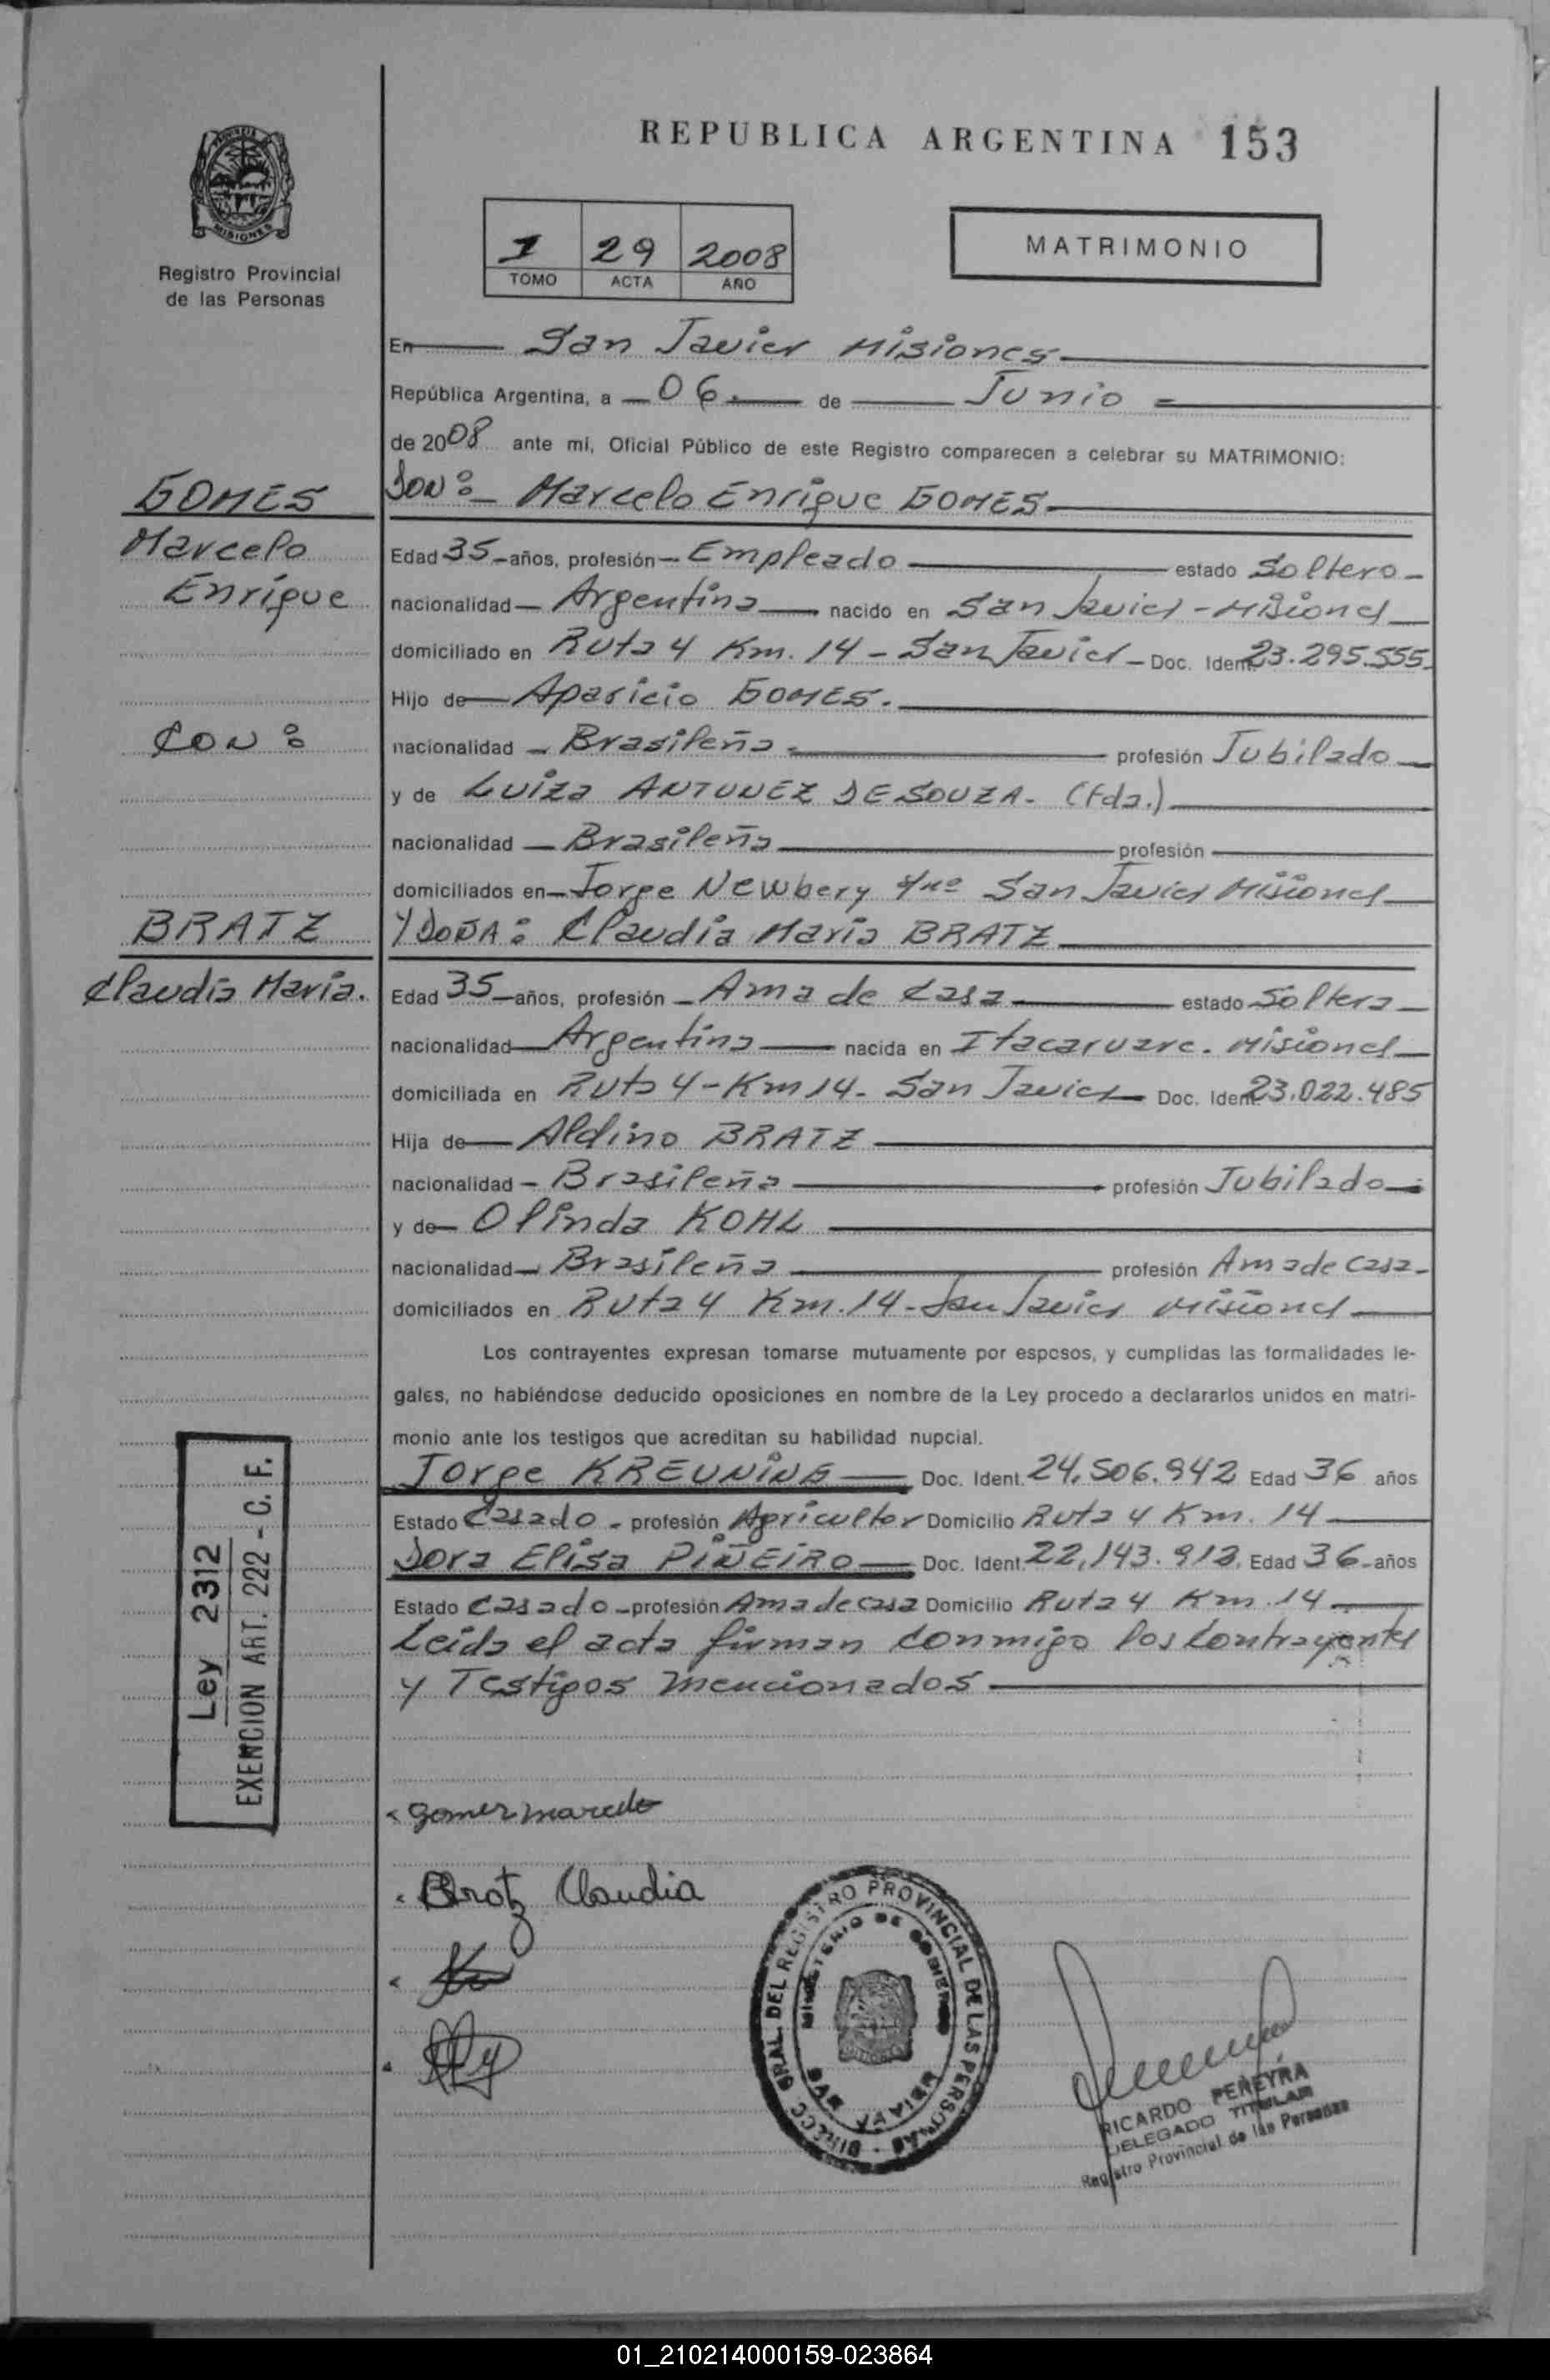 REPUBLICA ARGENTINA 153
MISIONES
Registro Provincial
de las Personas
1 29 2008
TOMO ACTA AÑO
MATRIMONIO
En San Javier Misiones
República Argentina, a 06 de Junio
de 2008 ante mí, Oficial Público de este Registro comparecen a celebrar su MATRIMONIO:
GOMES
Marcelo
Enrique
DON: Marcelo Enrique GOMES
Edad 35 años, profesión Empleado estado Soltero
nacionalidad Argentina nacido en San Javier - Misiones
domiciliado en Ruta 4 Km. 14 - San Javier - Doc. Ident. 23.295.555
Hijo de Aparicio GOMES.
CON:
nacionalidad Brasileña profesión Jubilado
y de Luiza ANTUNEZ DE SOUZA. (Fda.)
nacionalidad Brasileña profesión
domiciliados en Jorge Newbery s/nº San Javier Misiones
BRATZ
Claudia Maria.
Y DOÑA: Claudia Maria BRATZ
Edad 35 años, profesión Ama de Casa estado Soltera
nacionalidad Argentina nacida en Itacaruare. Misiones
domiciliada en Ruta 4 - Km 14 - San Javier Doc. Ident. 23.022.485
Hija de Aldino BRATZ
nacionalidad - Brasileña profesión Jubilado
y de Olinda KOHL
nacionalidad Brasileña profesión Ama de casa
domiciliados en Ruta 4 Km. 14 - San Javier Misiones
Los contrayentes expresan tomarse mutuamente por esposos, y cumplidas las formalidades le-
gales, no habiéndose deducido oposiciones en nombre de la Ley procedo a declararlos unidos en matri-
monio ante los testigos que acreditan su habilidad nupcial.
Jorge KREUNING Doc. Ident. 24.506.942 Edad 36 años
Estado Casado - profesión Agricultor Domicilio Ruta 4 Km. 14
Dora Elisa PIÑEIRO Doc. Ident. 22.143.913. Edad 36 años
Estado Casado - profesión Ama de casa Domicilio Ruta 4 Km. 14
Leida el acta firman conmigo los Contrayentes
y Testigos mencionados
Ley 2312
EXENCION ART. 222 - C. F.
Gomez marcelo
Bratz Claudia
DIRECC. GRAL. DEL REGISTRO PROVINCIAL DE LAS PERSONAS
MINISTERIO DE GOBIERNO
RICARDO PEREYRA
DELEGADO TITULAR
Registro Provincial de las Personas
01_210214000159-023864